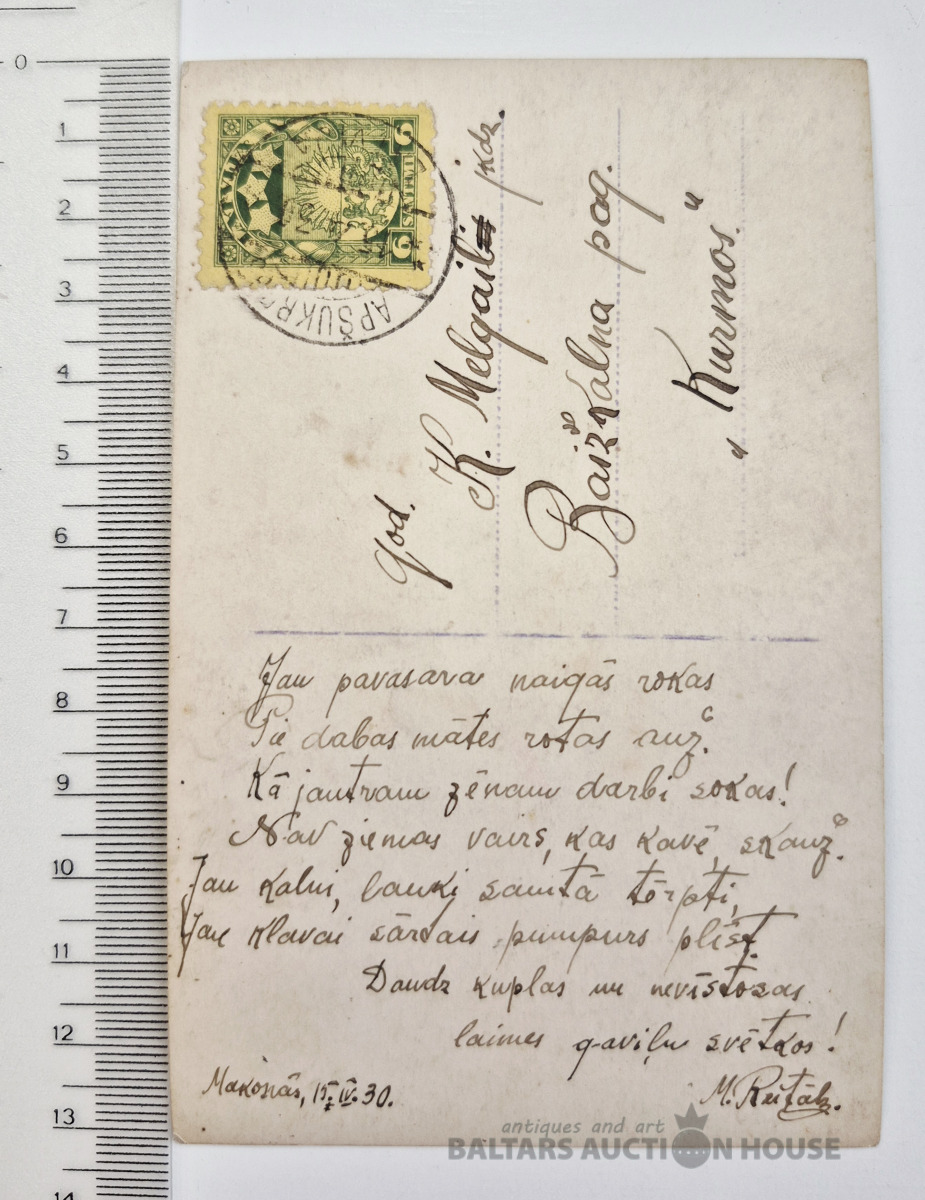 LATVIJA
6
SANTIMI
6
APŠUKR
God.
K. Melgail jkdz.
Baižkalna pag.
„Kurmos"
Jau pavasara naigās rokas
Pie dabas mātes rotas auž.
Kā jautram zēnam darbi sokas!
Nav ziemas vairs, kas kavē, skauž.
Jau kalni, lauki samtā tērpti,
Jau kļavai sārtais pumpurs plīst.
Daudz kuplas un nevīstošas
laimes gaviļu svētkos!
Makoņās, 15. IV. 30.
M.
0
1
2
3
4
5
6
7
8
9
10
11
12
13
14
antiques and art
BALTARS AUCTION HOUSE